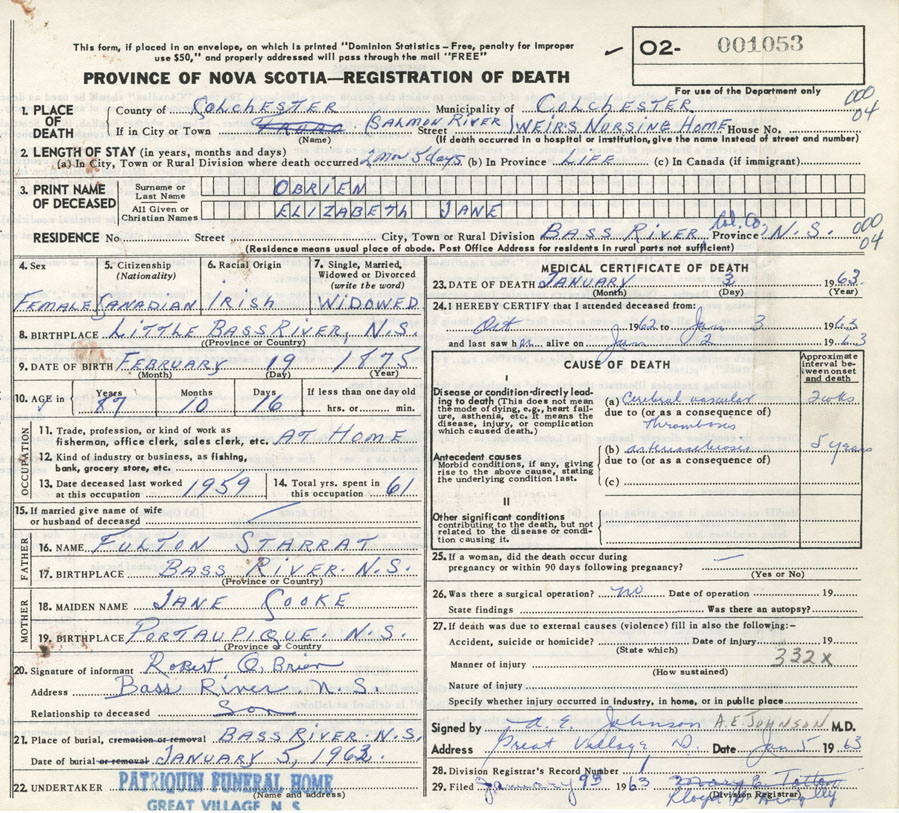 This form, if placed in an envelope, on which is printed "Dominion Statistics – Free, penalty for improper
use $50," and properly addressed will pass through the mail "FREE"
O2- 001053
PROVINCE OF NOVA SCOTIA—REGISTRATION OF DEATH
For use of the Department only
1. PLACE OF DEATH
County of COLCHESTER Municipality of COLCHESTER
000 04
If in City or Town TRURO (SALMON RIVER) Street WEIR'S NURSING HOME House No.
(Name) (If death occurred in a hospital or institution, give the name instead of street and number)
2. LENGTH OF STAY (in years, months and days)
(a) In City, Town or Rural Division where death occurred 2 mon 5 days (b) In Province LIFE (c) In Canada (if immigrant)
3. PRINT NAME OF DECEASED
Surname or Last Name OBRIEN
All Given or Christian Names ELIZABETH JANE
RESIDENCE No. Street City, Town or Rural Division BASS RIVER Col. Co, Province N.S.
000 04
(Residence means usual place of abode. Post Office Address for residents in rural parts not sufficient)
4. Sex
FEMALE
5. Citizenship (Nationality)
CANADIAN
6. Racial Origin
IRISH
7. Single, Married, Widowed or Divorced (write the word)
WIDOWED
8. BIRTHPLACE LITTLE BASS RIVER, N.S.
(Province or Country)
9. DATE OF BIRTH FEBRUARY 19 1875
(Month) (Day) (Year)
10. AGE in Years Months Days If less than one day old
87 10 16 hrs. or min.
OCCUPATION
11. Trade, profession, or kind of work as
fisherman, office clerk, sales clerk, etc. AT HOME
12. Kind of industry or business, as fishing,
bank, grocery store, etc.
13. Date deceased last worked at this occupation 1959
14. Total yrs. spent in this occupation 61
15. If married give name of wife
or husband of deceased
FATHER
16. NAME FULTON STARRAT
17. BIRTHPLACE BASS RIVER. N.S.
(Province or Country)
MOTHER
18. MAIDEN NAME JANE COOKE
19. BIRTHPLACE PORTAUPIQUE. N.S.
(Province or Country)
20. Signature of informant Robert O'Brien
Address Bass River N.S.
Relationship to deceased Son
21. Place of burial, cremation or removal BASS RIVER. N.S.
Date of burial or removal JANUARY 5, 1963
22. UNDERTAKER PATRIQUIN FUNERAL HOME
(Name and address)
GREAT VILLAGE, N. S.
MEDICAL CERTIFICATE OF DEATH
23. DATE OF DEATH JANUARY 3 1963
(Month) (Day) (Year)
24. I HEREBY CERTIFY that I attended deceased from:
Oct 1962 to Jan 3 1963
and last saw her alive on Jan 2 1963
CAUSE OF DEATH
Approximate interval between onset and death
I
Disease or condition directly leading to death (This does not mean the mode of dying, e.g., heart failure, asthenia, etc. It means the disease, injury, or complication which caused death.)
(a) Cerebral vascular
due to (or as a consequence of)
thrombosis
Antecedent causes
Morbid conditions, if any, giving rise to the above cause, stating the underlying condition last.
(b)
5 years
due to (or as a consequence of)
(c)
II
Other significant conditions
contributing to the death, but not related to the disease or condition causing it.
25. If a woman, did the death occur during
pregnancy or within 90 days following pregnancy? —
(Yes or No)
26. Was there a surgical operation? no Date of operation 19
State findings Was there an autopsy?
27. If death was due to external causes (violence) fill in also the following:–
Accident, suicide or homicide? Date of injury 19
(State which)
332X
Manner of injury
(How sustained)
Nature of injury
Specify whether injury occurred in industry, in home, or in public place
Signed by A. E. Johnson A.E. JOHNSON M.D.
Address Great Village Date Jan 5 1963
28. Division Registrar's Record Number 1
29. Filed January 1963
(Division Registrar)